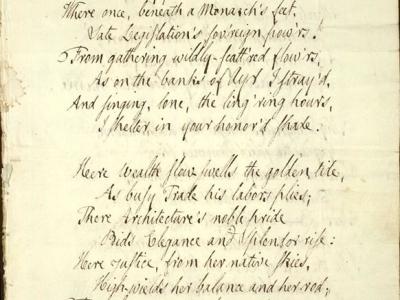 Where once, beneath a Monarch's feet,
Sate Legislation's sov'reign pow'rs!
From gathering wildly-scatt'red flow'rs,
As on the banks of Ayr I stray'd,
And singing, lone, the ling'ring hours,
I shelter in your honor'd shade.
Heere Wealth still swells the golden tide,
As busy Trade his labors plies;
There Architecture's noble pride
Bids Elegance and Splendor rise:
Here Justice, from her native skies,
High wields her balance and her rod;